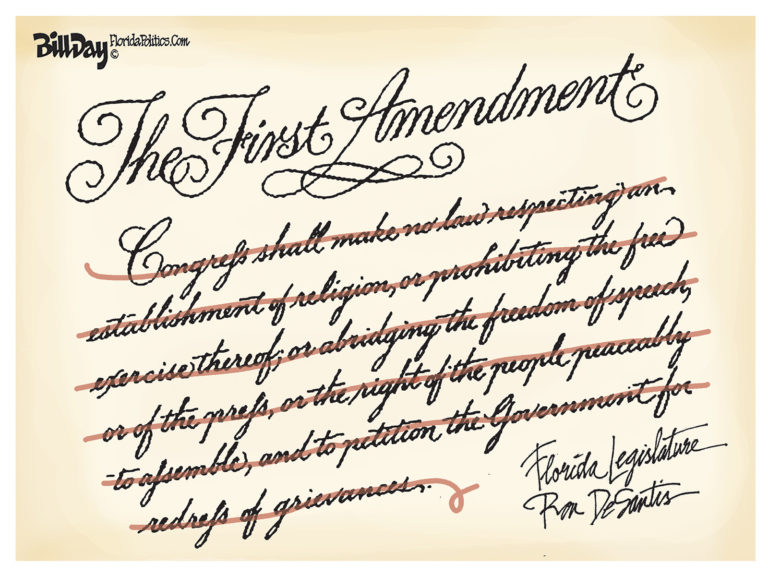 Bill Day FloridaPolitics.Com
©
The First Amendment
Congreſs shall make no law respecting an
establishment of religion, or prohibiting the free
exercise thereof; or abridging the freedom of speech,
or of the preſs, or the right of the people peaceably
to aſsemble, and to petition the Government for
redreſs of grievances.
Florida Legislature
Ron DeSantis